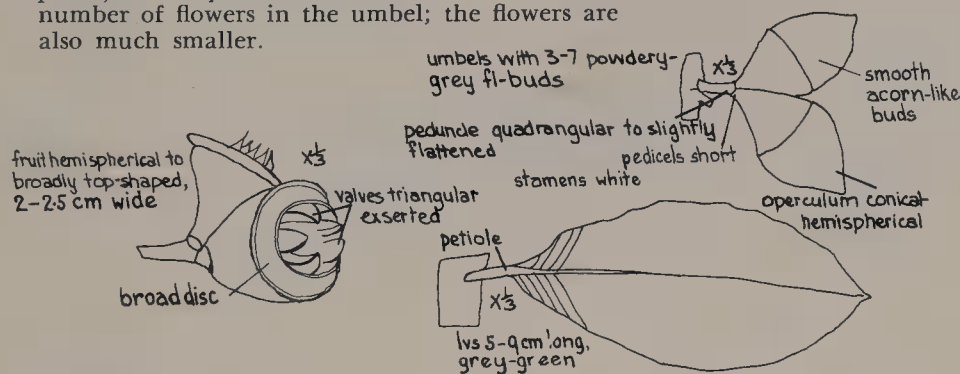 number of flowers in the umbel; the flowers are
also much smaller.
umbels with 3-7 powdery-
grey fl-buds
x⅓
smooth
acorn-like
buds
peduncle quadrangular to slightly
flattened
pedicels short
stamens white
operculum conical-
hemispherical
fruit hemispherical to
broadly top-shaped,
2-2.5 cm wide
x⅓
valves triangular
exserted
broad disc
petiole
x⅓
lvs 5-9cm long,
grey-green